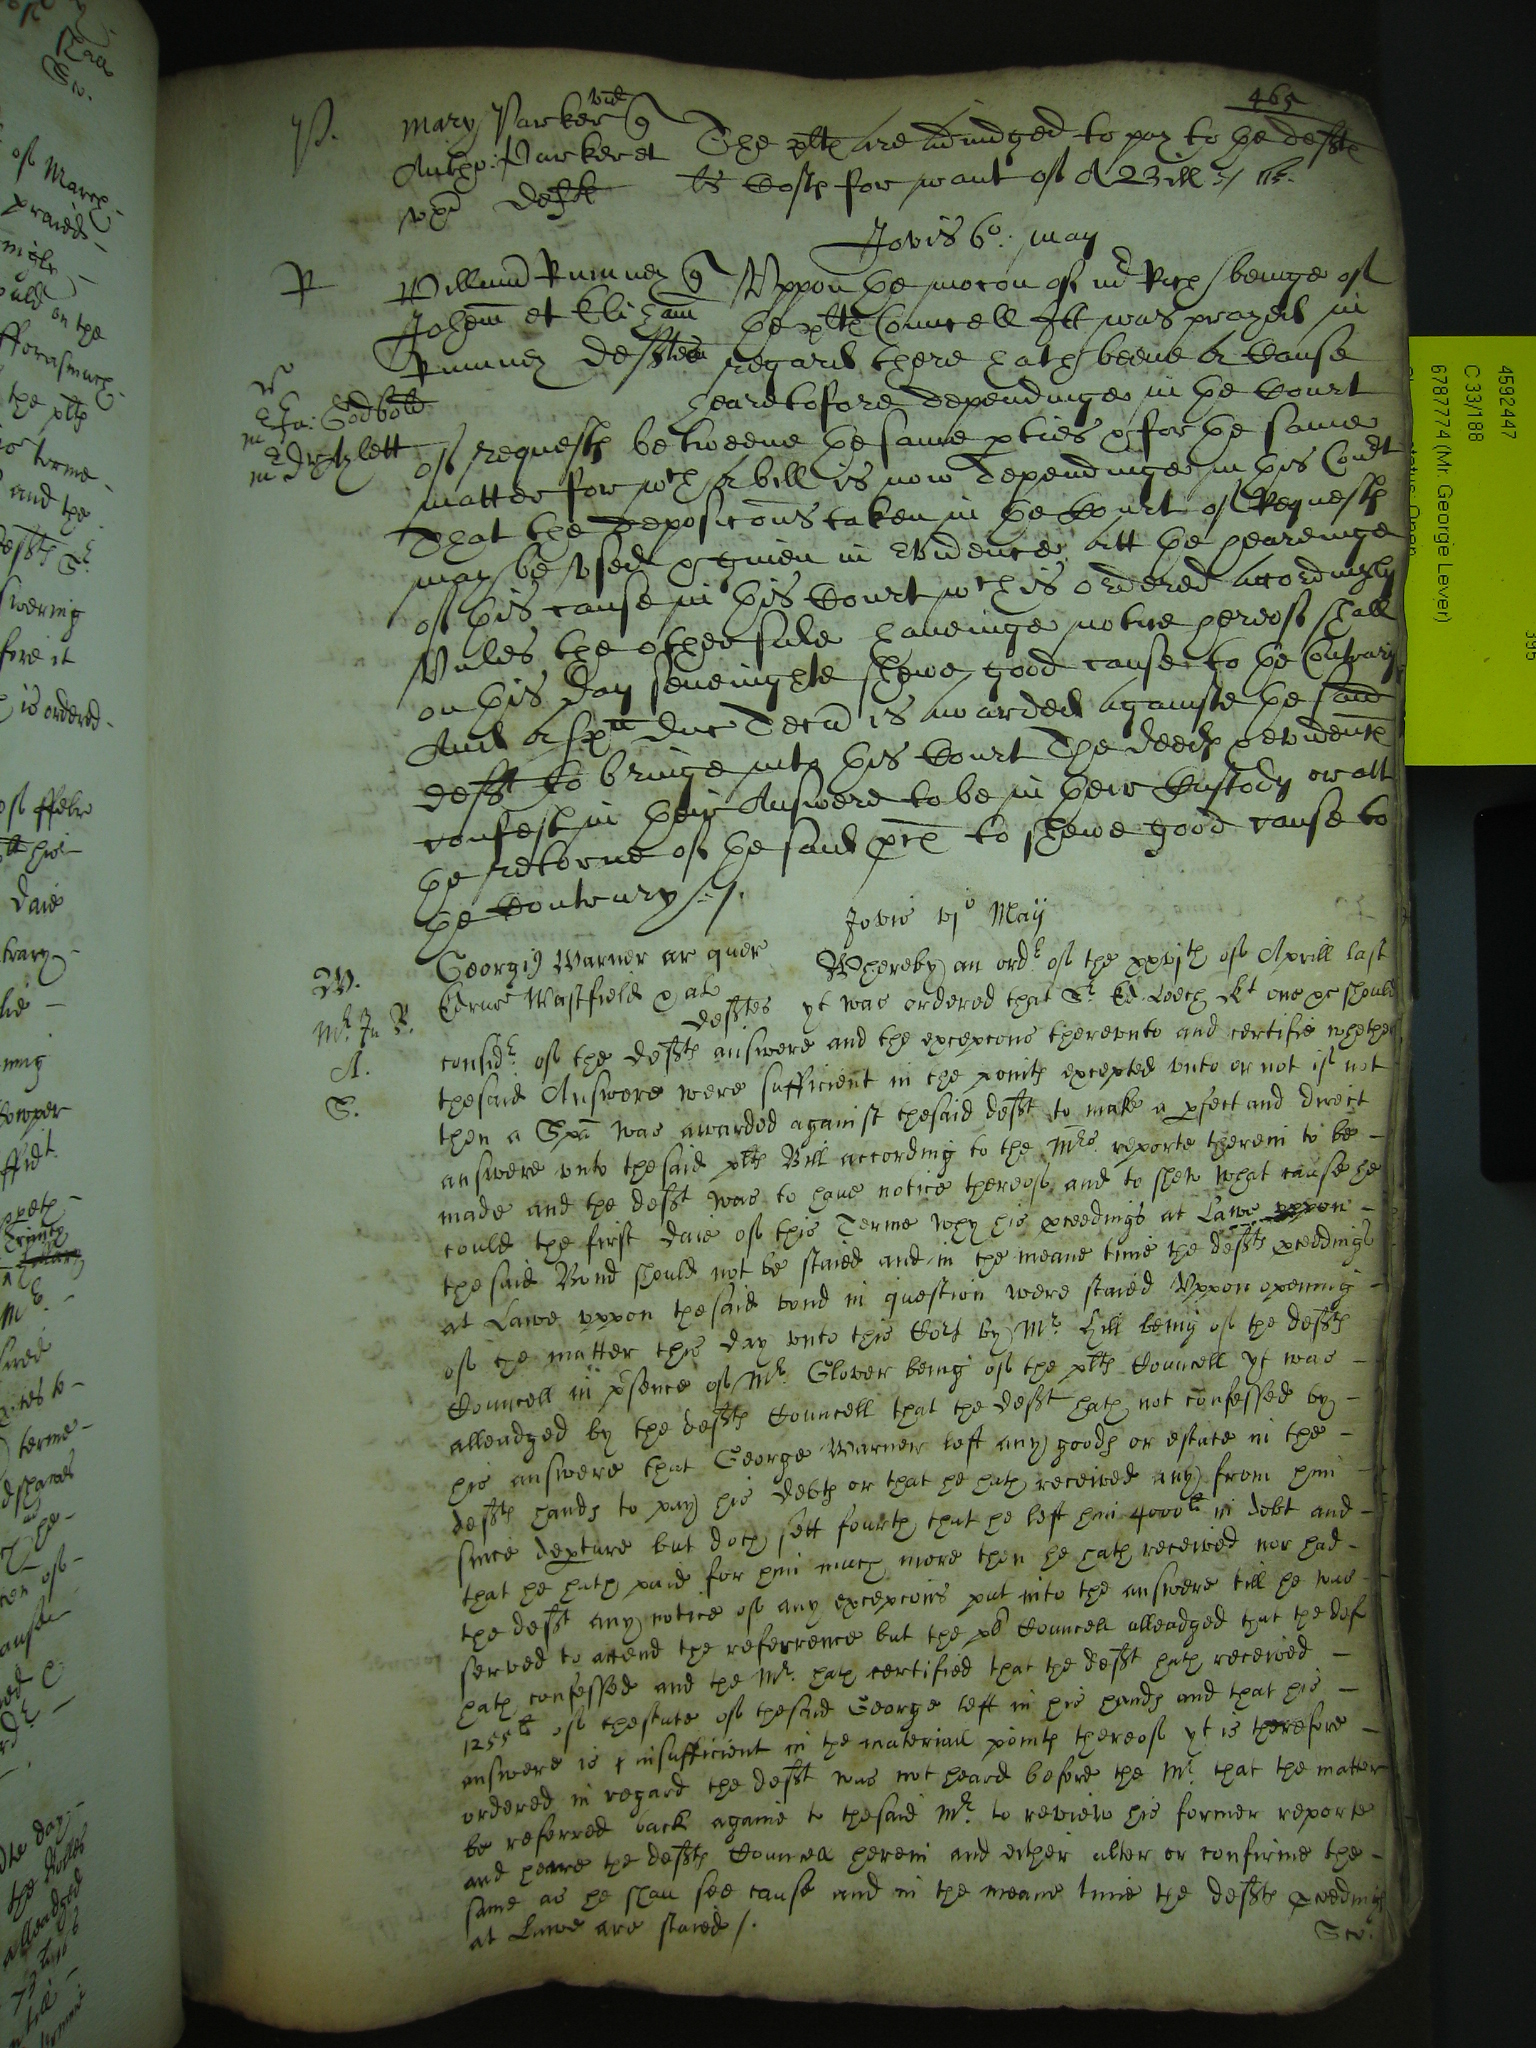 465
P. Mary Parker vid q
Antho: Parker et The plts are adiudged to pay to the defts
vx defts ls Costs for want of A Bill
Jovis 6o: may
R Willimu Rumney q Vppon the mocon of mr Rich beinge of
Johem et Elizam the plts Councell Itt was prayed in
Rumney defftes regard there hath beene A Cause
hearetofore dependinge in the Court
mr Jn: Godbolt
of requests betweene the same pties & for the same
mr Aylett
matter for wch A bill is now dependinge in this Court
That the deposicons taken in the Court of Requests
may be vsed & given in Evidence att the heareinge
of this cause in this Court wch is ordered Accordingly
Vnles the other side haveinge notice thereof shall
on this day seveinghte shewe good cause to the Contrary
And A spa duc Tecu is awarded againste the said
defft to bringe into this Court The deeds & evidents
confest in their Answere to be in their Custody or att
the retorne of the said pces to shewe good cause to
the Contrary /
Jovis vjo Maij
W. Georgi9 Warner ar quer Whereby an ordr of the xxvjth of Aprill last
Wastfield & al defftes yt was ordered that Sr Ed Leech Kt one &c should
Mr Jn P.
considr of the deffts answere and the excepcons therevnto and certifie whether
A.
thesaid Answere were sufficient in the points excepted vnto or not if not
S.
then a Spa was awarded against thesaid defft to make a pfect and direct
answere vnto thesaid plts Bill according to the Mrs reporte therein to be
made and the defft was to have notice thereof and to shew what cause he
could the first daie of this Terme why his pceedings at Lawe vppon
thesaid Bond should not be staied and in the meane time the deffts pceedings
at Lawe vppon thesaid bond in question were staied Vppon opening
of the matter this day vnto this Cort by Mr Hill being of the deffts
Councell in psence of Mr Glover being of the plts Councell yt was
alleadged by the deffts Councell that the defft hath not confessed by
his answere that George Warner left any goods or estate in the
deffts hands to pay his debts or that he hath received any from him
since depture but doth sett fourth that he left him 4000li in debt and
that he hath paid for him much more then he hath received nor had
the defft any notice of any excepcons put into the answere till he was
served to attend the referrence but the plts Councell alleadged that the def
hath confessed and the Mr hath certified that the defft hath received
1255li of thestate of thesaid George left in his hands and that his
answere is insufficient in the materiall points thereof yt is therefore
ordered in regard the defft was not heard before the Mr that the matter
be referred back againe to thesaid Mr to review his former reporte
and heare the deffts Councell therein and either alter or confirme the
same as he shall see cause and in the meane time the deffts pceedings
at Lawe are staied /.
4592447
C 33/188
6787774 (Mr. Georgie Lever)